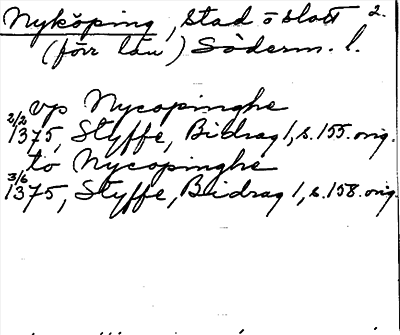 Nyköping, stad o slott 2.
(förr län) Söderm. l.
vp Nycopinghe
2/2 1375, Styffe, Bidrag 1, s. 155. orig.
to Nycopinghe
3/6 1375, Styffe, Bidrag 1, s. 158. orig.